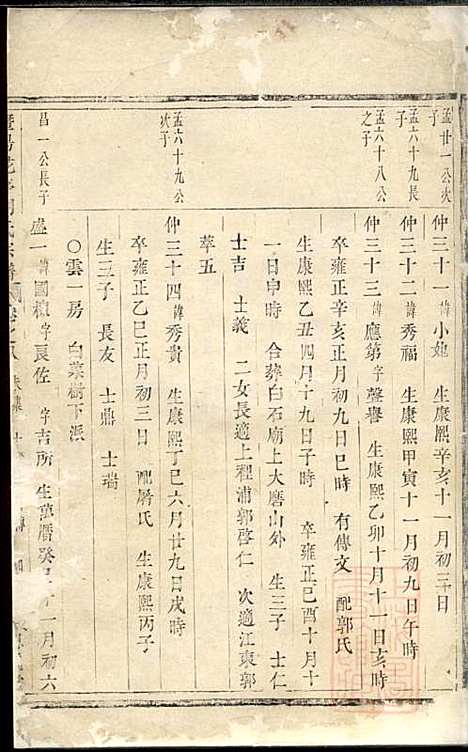 孟廿一公次子
仲三十一 諱小媲 生康熙辛亥十一月初三日
孟六十九長子
仲三十二 諱秀福 生康熙甲寅十一月初九日午時
孟六十八公之子
仲三十三 諱應第 字聲譽 生康熙乙卯十月十一日亥時
卒雍正辛亥正月初九日巳時 有傳文 配郭氏
生康熙乙丑四月十九日子時 卒雍正己酉十月十
一日申時 合葬白石廟上大磨山外 生三子 士仁
士吉 士義 二女長適上程浦郭啓仁 次適江東郭
萃五
孟六十九公次子
仲三十四 諱秀貴 生康熙丁巳六月廿九日戌時
卒雍正乙巳正月初三日 配屠氏 生康熙丙子
生三子 長友 士鼎 士瑞
○雲一房 白葉樹下派
昌一公長子
盛一 諱國楨 字良佐 字吉所 生萬曆癸 十一月初六
氏宗譜